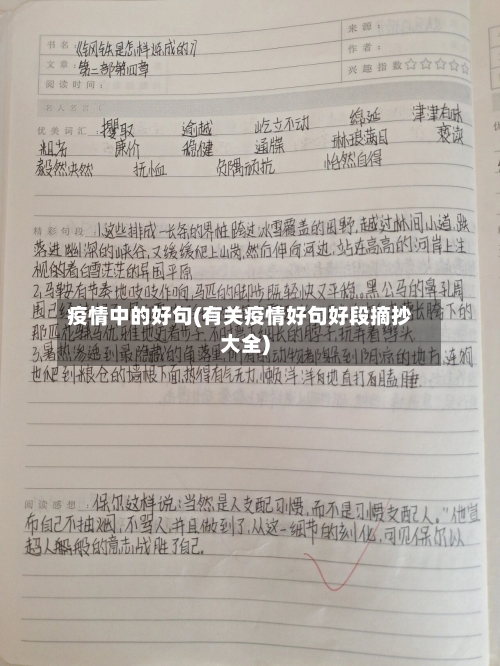 书名:《钢铁是怎样炼成的》
来源:
文章:第二部第四章
作者:
阅读时间:
兴趣指数☆☆☆☆☆
名人名言
优美词汇: 攫取 逾越 屹立不动 绵延 津津有味
粗劣 廉价 稳健 通牒 琳琅满目 亵渎
毅然决然 抚恤 负隅顽抗 怡然自得
精彩句段: 1.这些排成一长条的界桩跨过冰雪覆盖的田野,越过林间小道,跌
落进幽深的峡谷,又缓缓爬上山岗,然后伸向河边,站在高高的河岸上注
视的看白雪茫茫的异国平原
2.马鞍有节奏地吱吱作响,马匹的脚步既轻快又平稳。黑公马的鼻孔周
疫情中的好句(有关疫情好句好段摘抄
大全)
3.暑热渗透到最隐蔽的角落里,所有动物都躲到阴凉的地方,连狗
也爬到粮仓的墙根下面,热得有气无力,懒洋洋有地直打着瞌睡
阅读感想: 保尔这样说:当然是人支配习惯,而不是习惯支配人。"他宣
布自己不抽烟,不骂人,并且做到了,从这一细节的刻化,可见保尔以
超人般的意志战胜了自己。